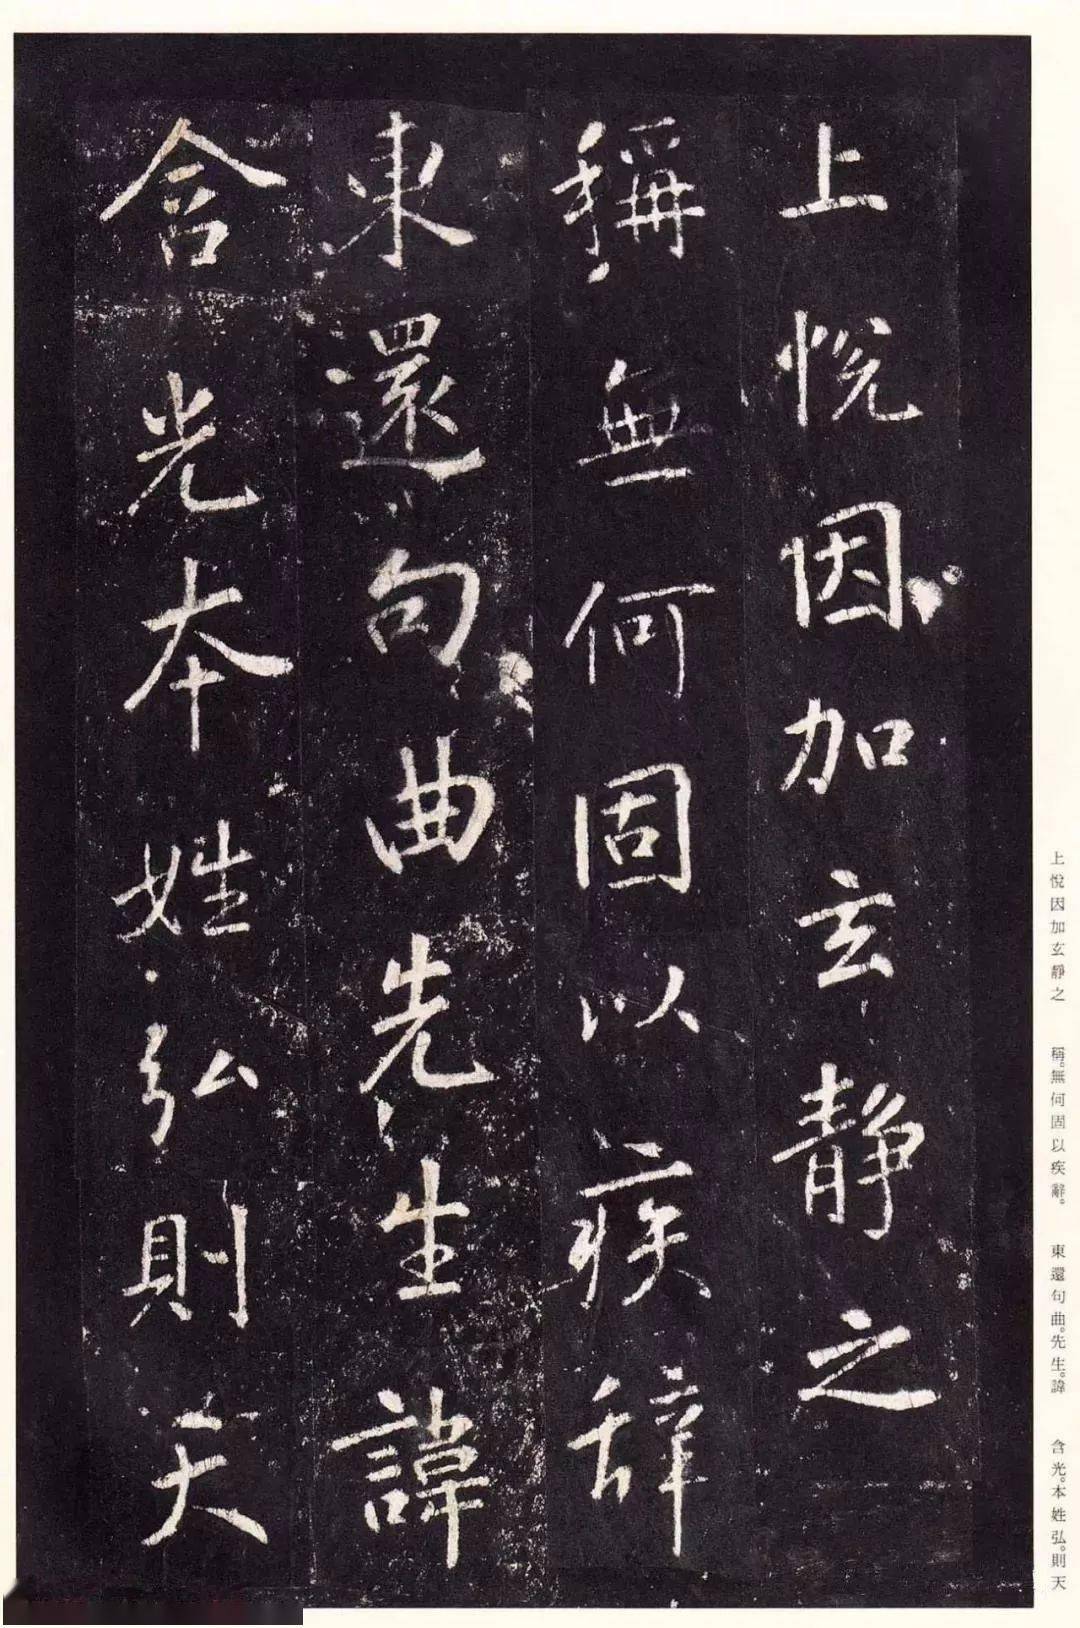 上悦因加玄静之
稱無何固以疾辞
東還句曲先生諱
含光本姓弘則天
上悅因加玄靜之
稱。無何固以疾辭。
東還句曲。先生。諱
含光。本姓弘。則天